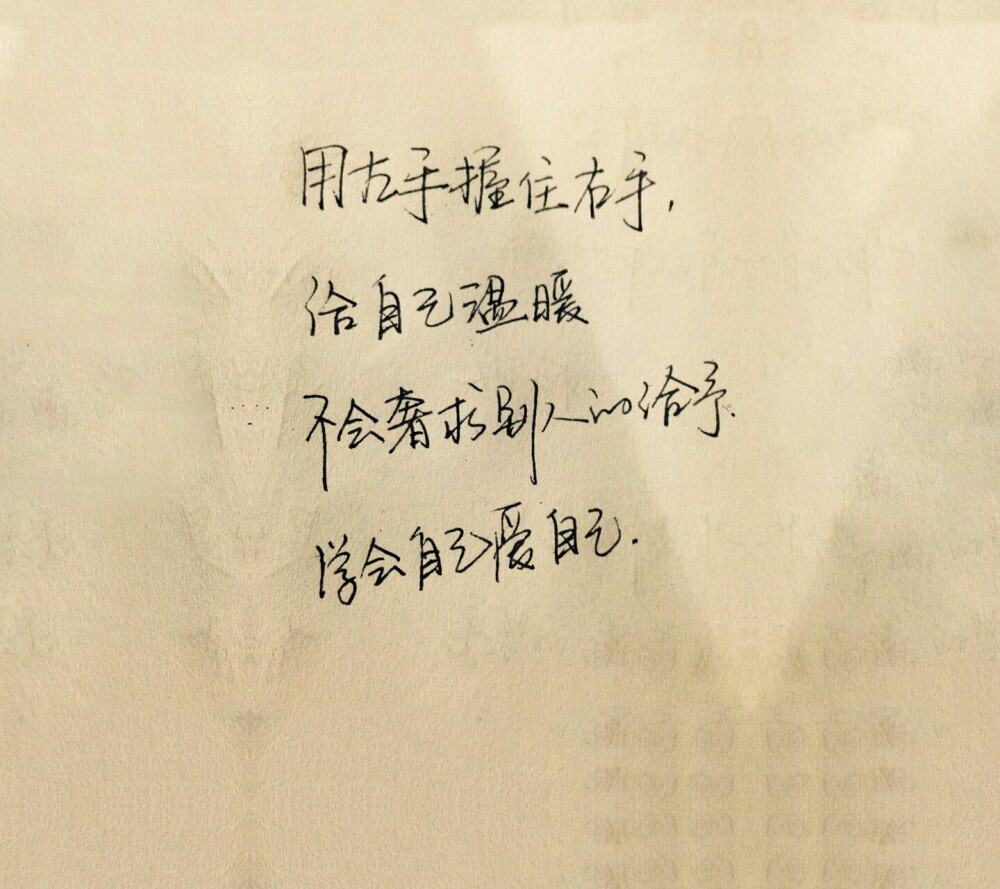 用左手握住右手，
给自己温暖
不会奢求别人的给予.
学会自己爱自己.